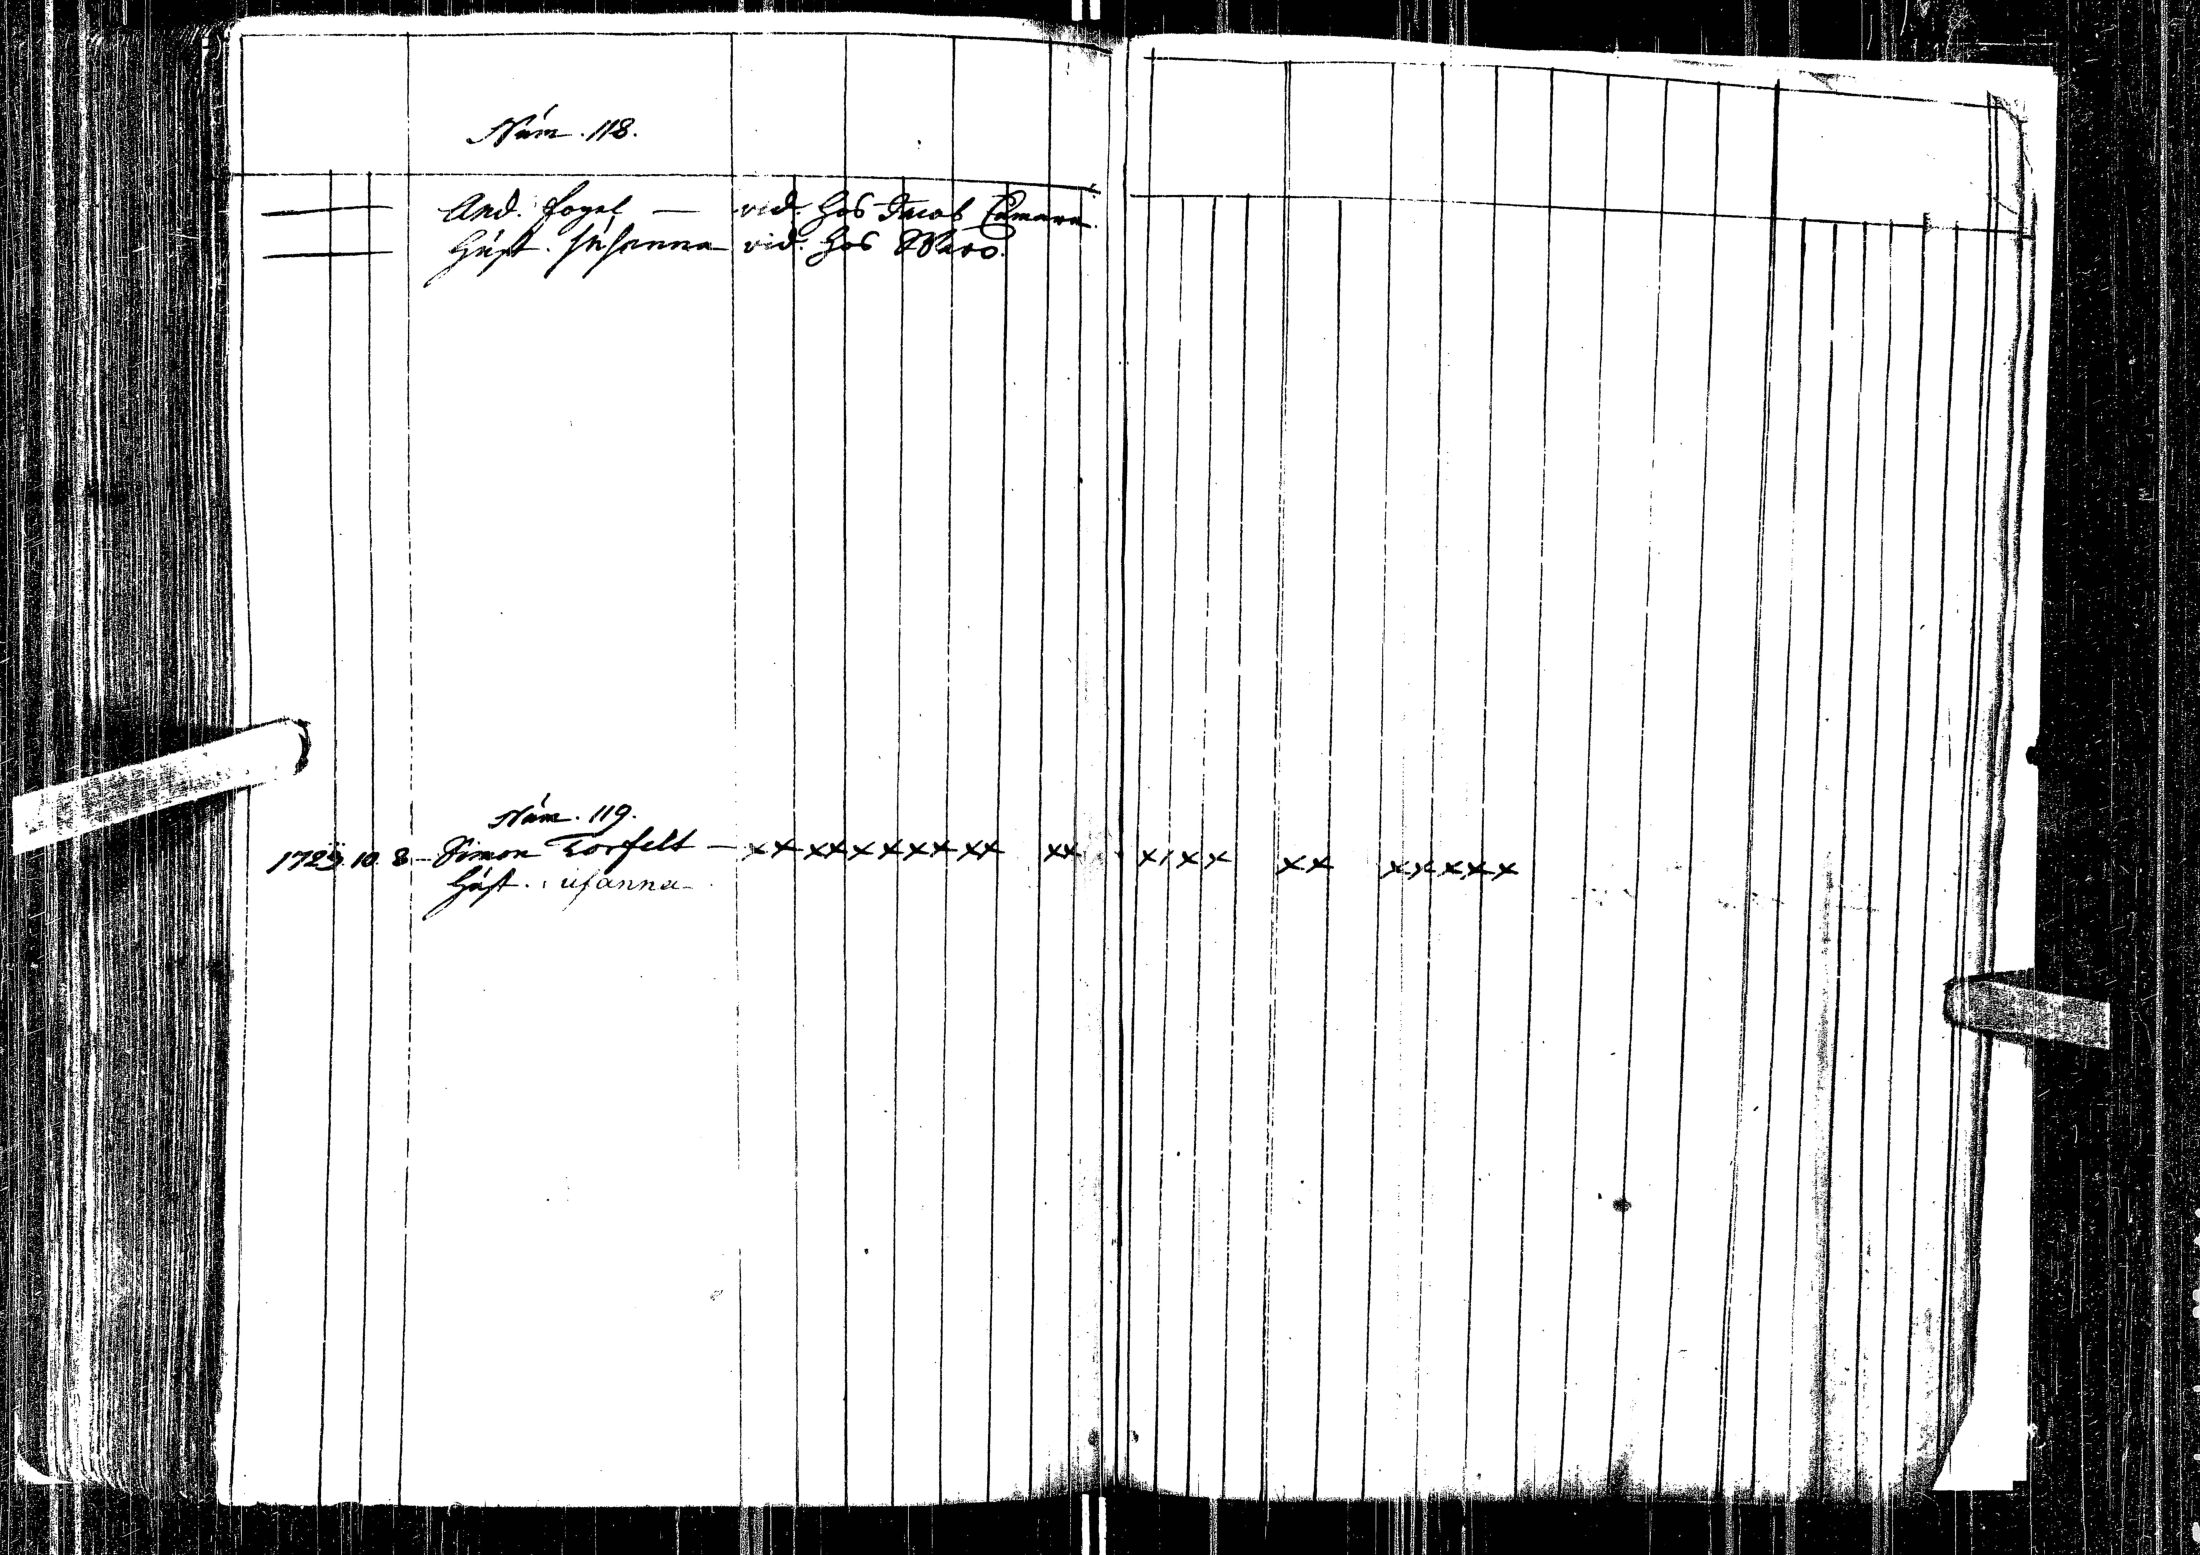 Núm. 118.
And. Fogel — vid. hos Jacob Cämärä.
Hust. Susanna vid. hos
Núm. 119.
1723. 10. 8. Simon Torfelt — x x x x x x x x x x x x x x x x x x x x x x x
Hust. Susanna